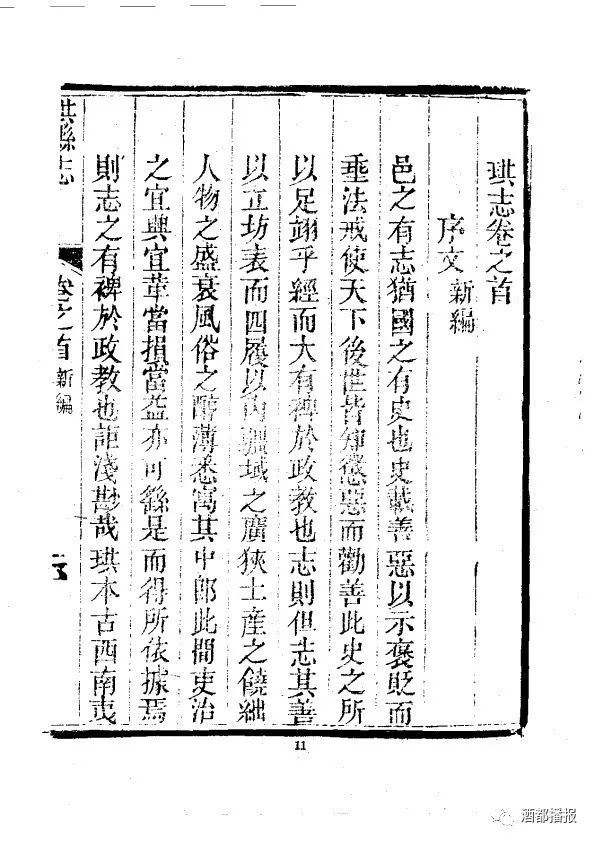 珙志卷之首
序文 新編
邑之有志猶國之有史也史載善惡以示褒貶而
垂法戒使天下後世皆知懲惡而勸善此史之所
以足翊乎經而大有裨於政教也志則但志其善
以立坊表而四履以內疆域之廣狹士產之饒絀
人物之盛衰風俗之醇薄悉寓其中郎此間吏治
之宜興宜革當損當益亦可繇是而得所依據焉
則志之有裨於政教也詎淺尠哉珙本古西南夷
珙縣志
卷之首 新編
11
酒都播报